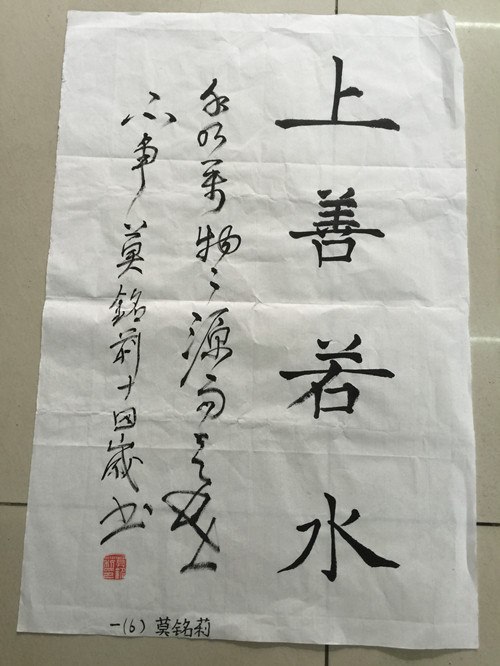 上善若水
水乃萬物之源而
不争 莫銘莉十四歲书
一(6) 莫铭莉